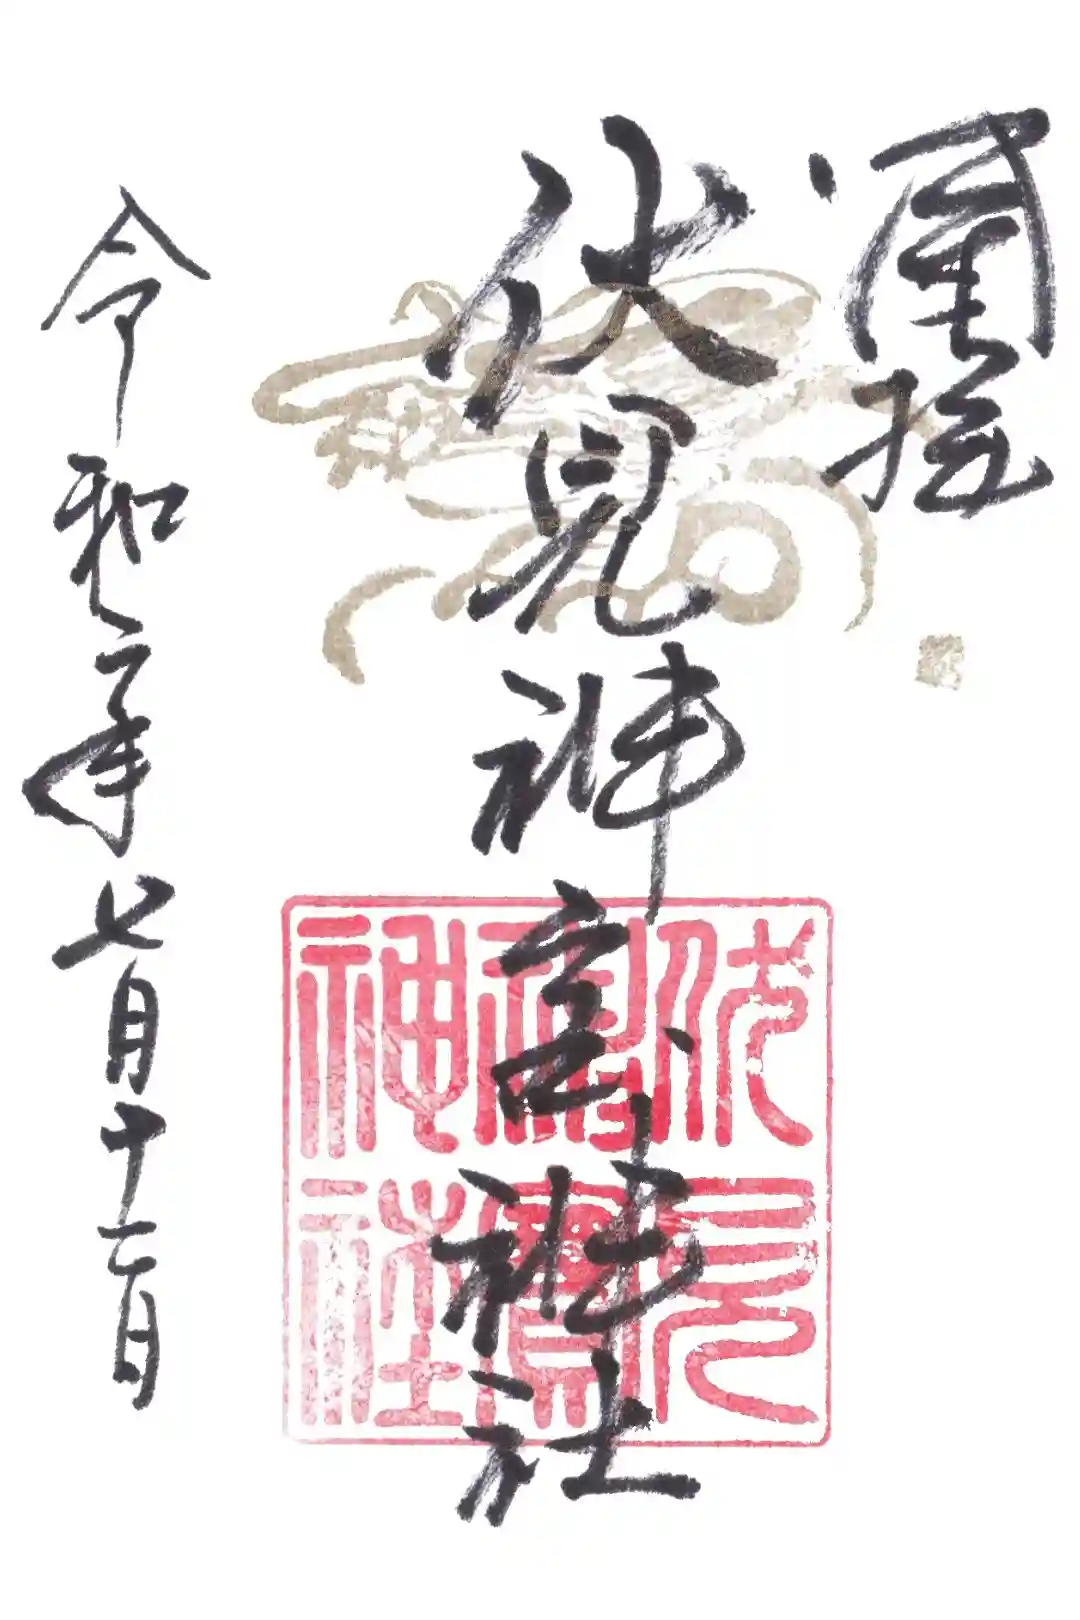 拝
伏見神宝神社
令和二年七月十二日
伏見神寶神社